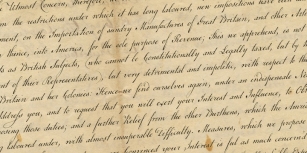 of utmost Concern, therefore,
in the restrictions under which it has long laboured, new impositions have
ment, on the Importation of sundry Manufactures of Great Britain, and other
thence, into America, for the sole purpose of Revenue, This we apprehend, is not
as British Subjects, (who cannot be Constitutionally and Legally taxed, but by
of their Representatives), but very detrimental and impolitic, with respect to the
Britain and her Colonies. Hence we find ourselves again, under an indispensable
Address you, and to request that you will exert your Interest and Influence, to
those duties, and a further Relief from the other Burthens, which the
laboured under, with almost insuperable Difficulty. Measures, which we propose
your Interest is full as much concerned